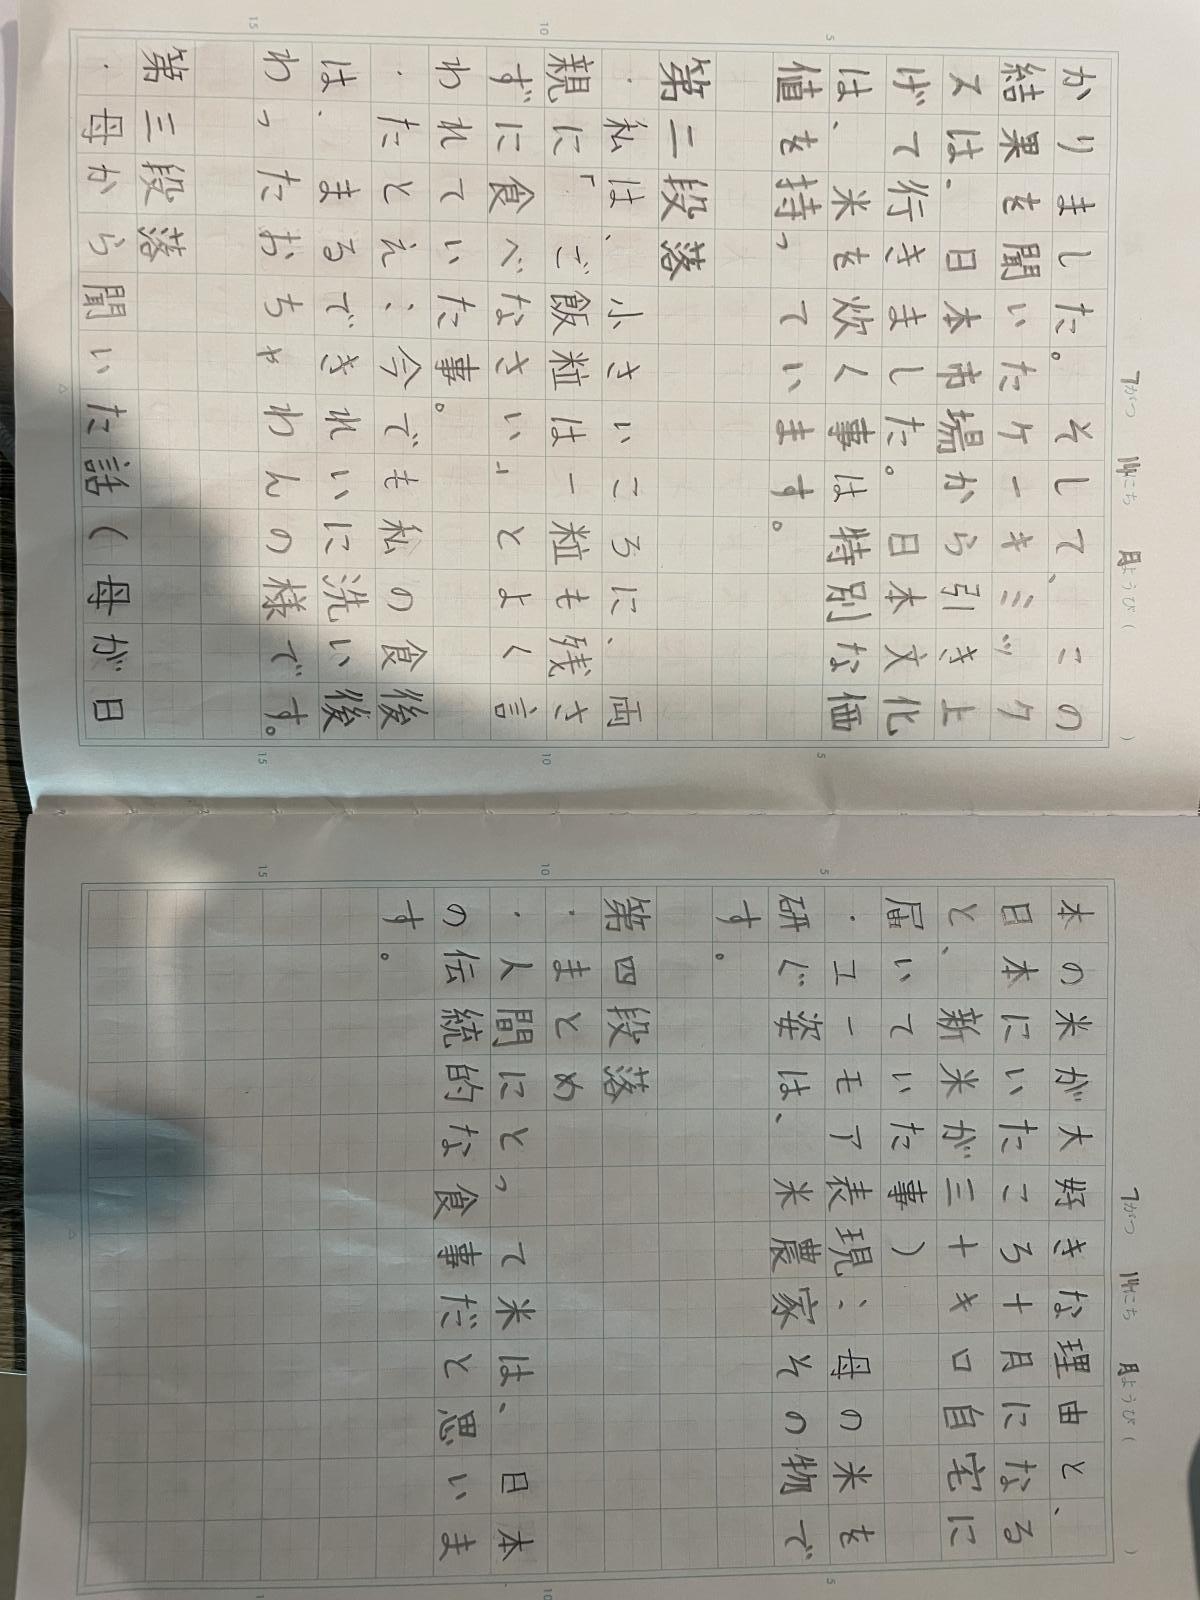 7がつ 14にち 月ようび( )
かりました。そして、この
結果を聞いたケーキミック
スは、日本市場から引き上
げて行きました。日本文化
は、米を炊く事は特別な価
値を持っています。
第二段落
・私は、小さいころに、両
親に「ご飯粒は一粒も残さ
ずに食べなさい」とよく言
われていた事。
・たとえ:今でも私の食後
は、まるできれいに洗い後
わったおちゃわんの様です。
第三段落
・母から聞いた話(母が日
7がつ 14にち 月ようび( )
本の米が大好きな理由と、
日本にいたころ十月になる
と、新米が三十キロ自宅に
届いていた事)
・ユーモア表現:母の米を
研ぐ姿は、米農家その物で
す。
第四段落
・まとめ
・人間にとって米は、日本
の伝統的な食事だと思いま
す。
5
10
15
5
10
15
5
10
15
5
10